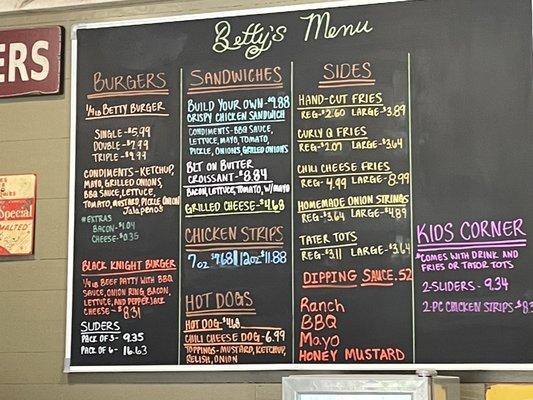 Betty's Menu
ERS
Special
BURGERS
1/4 lb BETTY BURGER
SINGLE-$5.99
DOUBLE-$7.99
TRIPLE-$9.99
CONDIMENTS-KETCHUP,
MAYO, GRILLED ONIONS,
BBQ SAUCE, LETTUCE,
TOMATO, MUSTARD, PICKLE, ONION
Jalapeños
*EXTRAS
BACON-$1.04
CHEESE-$0.35
BLACK KNIGHT BURGER
1/4 lb BEEF PATTY WITH BBQ
SAUCE, ONION RING, BACON,
LETTUCE, AND PEPPERJACK
CHEESE-$8.31
SLIDERS
PACK OF 3- 9.35
PACK OF 6- 16.63
SANDWICHES
BUILD YOUR OWN-$9.88
CRISPY CHICKEN SANDWICH
CONDIMENTS-BBQ SAUCE,
LETTUCE, MAYO, TOMATO,
PICKLE, ONIONS, GRILLED ONIONS
BLT ON BUTTER
CROISSANT-$8.84
BACON, LETTUCE, TOMATO, W/MAYO
GRILLED CHEESE-$4.68
CHICKEN STRIPS
7oz $9.68 | 12oz $11.88
HOT DOGS
HOT DOG-$4.68
CHILI CHEESE DOG-6.99
TOPPINGS-MUSTARD, KETCHUP,
RELISH, ONION
SIDES
HAND-CUT FRIES
REG-$2.60 LARGE-$3.89
CURLY Q FRIES
REG-$2.09 LARGE-$3.64
CHILI CHEESE FRIES
REG-4.99 LARGE-8.99
HOMEMADE ONION STRINGS
REG-$3.64 LARGE-$4.89
TATER TOTS
REG-$3.11 LARGE-$3.64
DIPPING SAUCE .52
Ranch
BBQ
Mayo
HONEY MUSTARD
KIDS CORNER
*COMES WITH DRINK AND
FRIES OR TATOR TOTS
2-SLIDERS- 9.34
2-PC CHICKEN STRIPS-$8.3